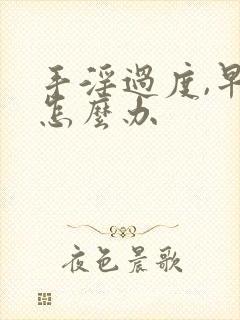 手淫過度,早
怎麼办
夜色晨歌